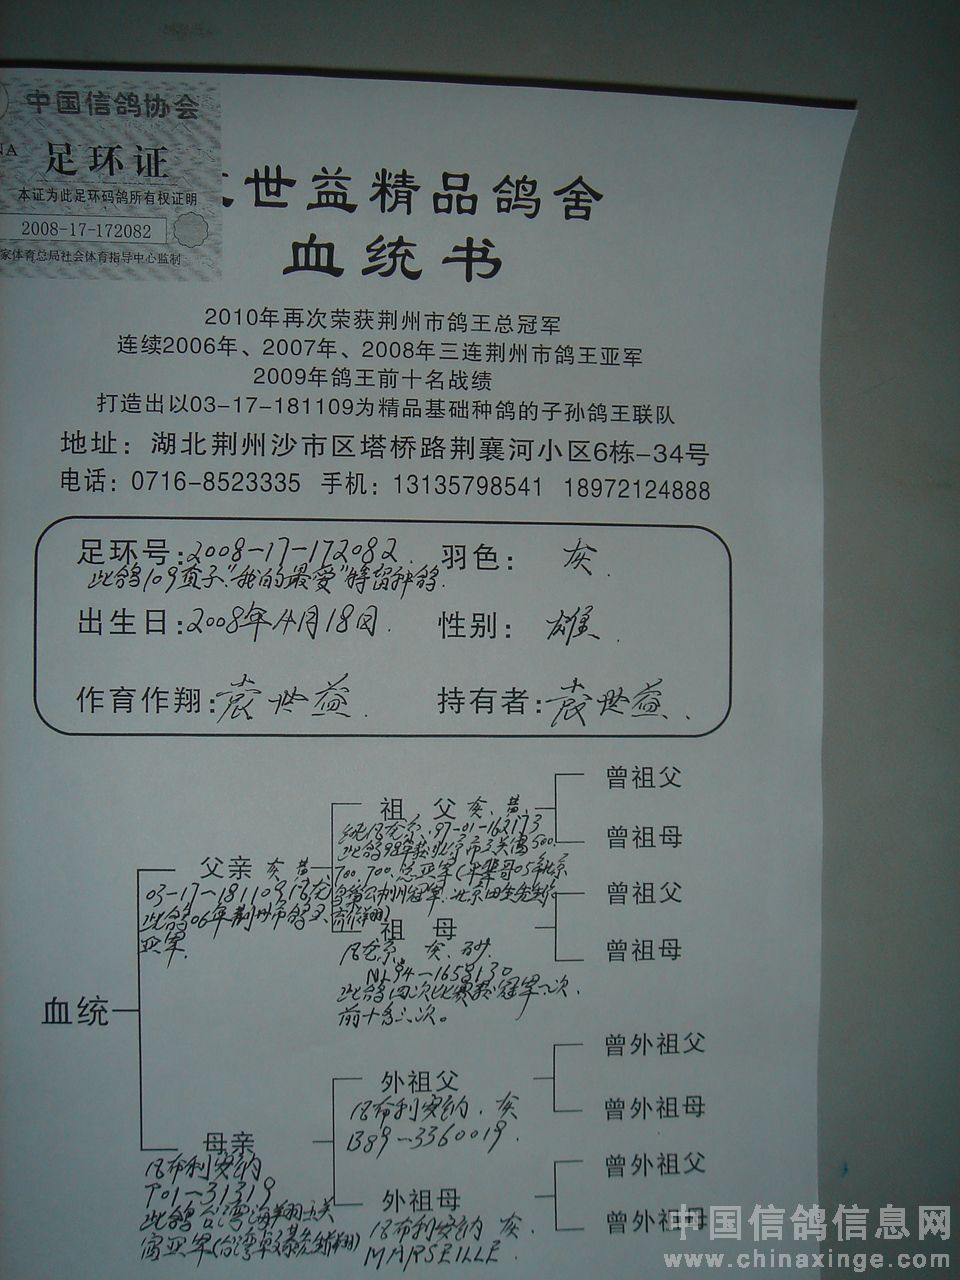 中国信鸽协会
NA 足环证
本证为此足环码鸽所有权证明
2008-17-172082
家体育总局社会体育指导中心监制
世益精品鸽舍
血统书
2010年再次荣获荆州市鸽王总冠军
连续2006年、2007年、2008年三连荆州市鸽王亚军
2009年鸽王前十名战绩
打造出以03-17-181109为精品基础种鸽的子孙鸽王联队
地址：湖北荆州沙市区塔桥路荆襄河小区6栋-34号
电话：0716-8523335 手机：13135798541 18972124888
足环号：2008-17-172082. 羽色：灰.
此鸽109直子."我的最爱"特留种鸽.
出生日：2008年4月18日. 性别：雄.
作育作翔：袁世益. 持有者：袁世益.
曾祖父
祖父 灰、黄.
97-01-162173
曾祖母
此鸽98年获北京市三关赛500.
父亲 灰 黄
700.700.总亚军
03-17-181109
曾祖父
此鸽06年荆州市鸽王
亚军.
祖母
灰.砂.
曾祖母
NL94-1658130
此鸽四次比赛获冠军二次.
前十名三次。
血统
曾外祖父
外祖父
凡布利安那.灰
B89-3360019.
曾外祖母
母亲
凡布利安那
T01-31319
曾外祖父
此鸽台湾海翔五关
外祖母
凡布利安那 灰.
曾外祖母
MARSEILLE.
中国信鸽信息网
www.chinaxinge.com